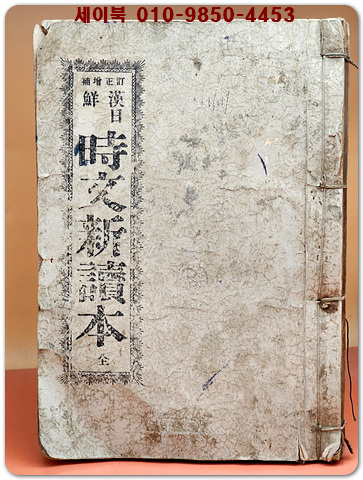 세이북 010-9850-4453
訂正增補
漢日鮮
時文新讀本
全